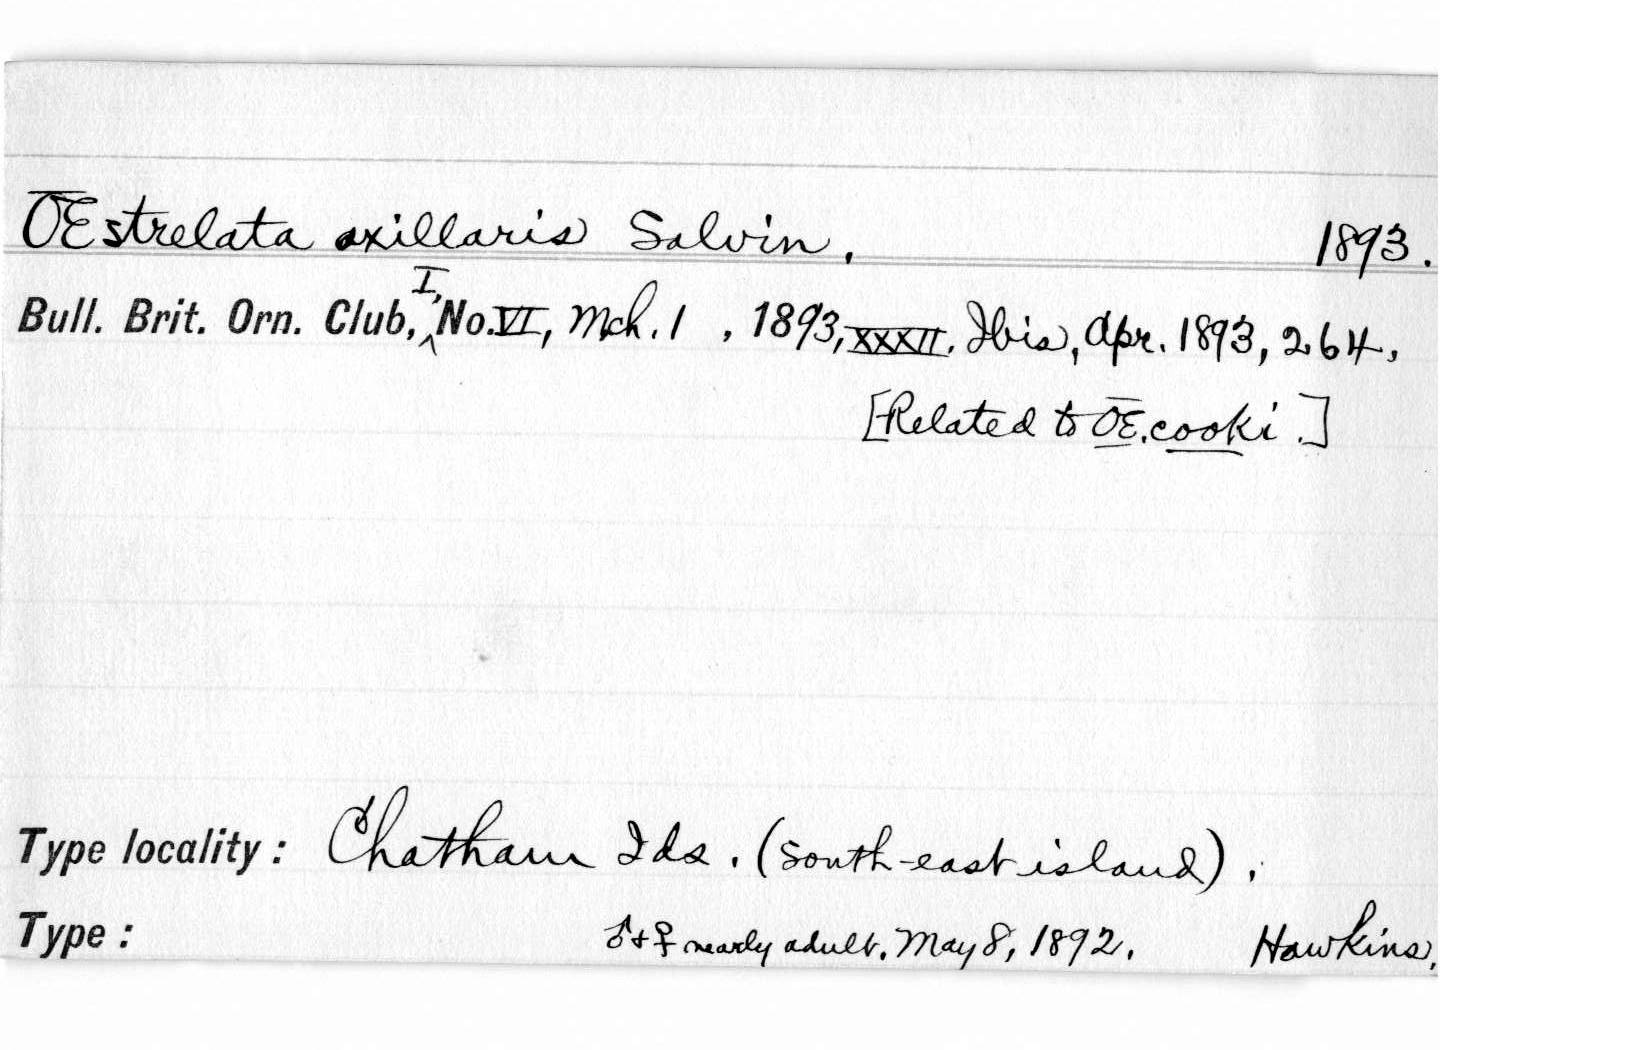 OEstrelata axillaris Salvin, 1893.
Bull. Brit. Orn. Club, I, No. VI, Mch. 1, 1893, XXXII. Ibis, Apr. 1893, 264,
[Related to OE. cooki.]
Type locality: Chatham Ids. (South-east island).
Type: ♂ + ♀ nearly adult. May 8, 1892. Hawkins.